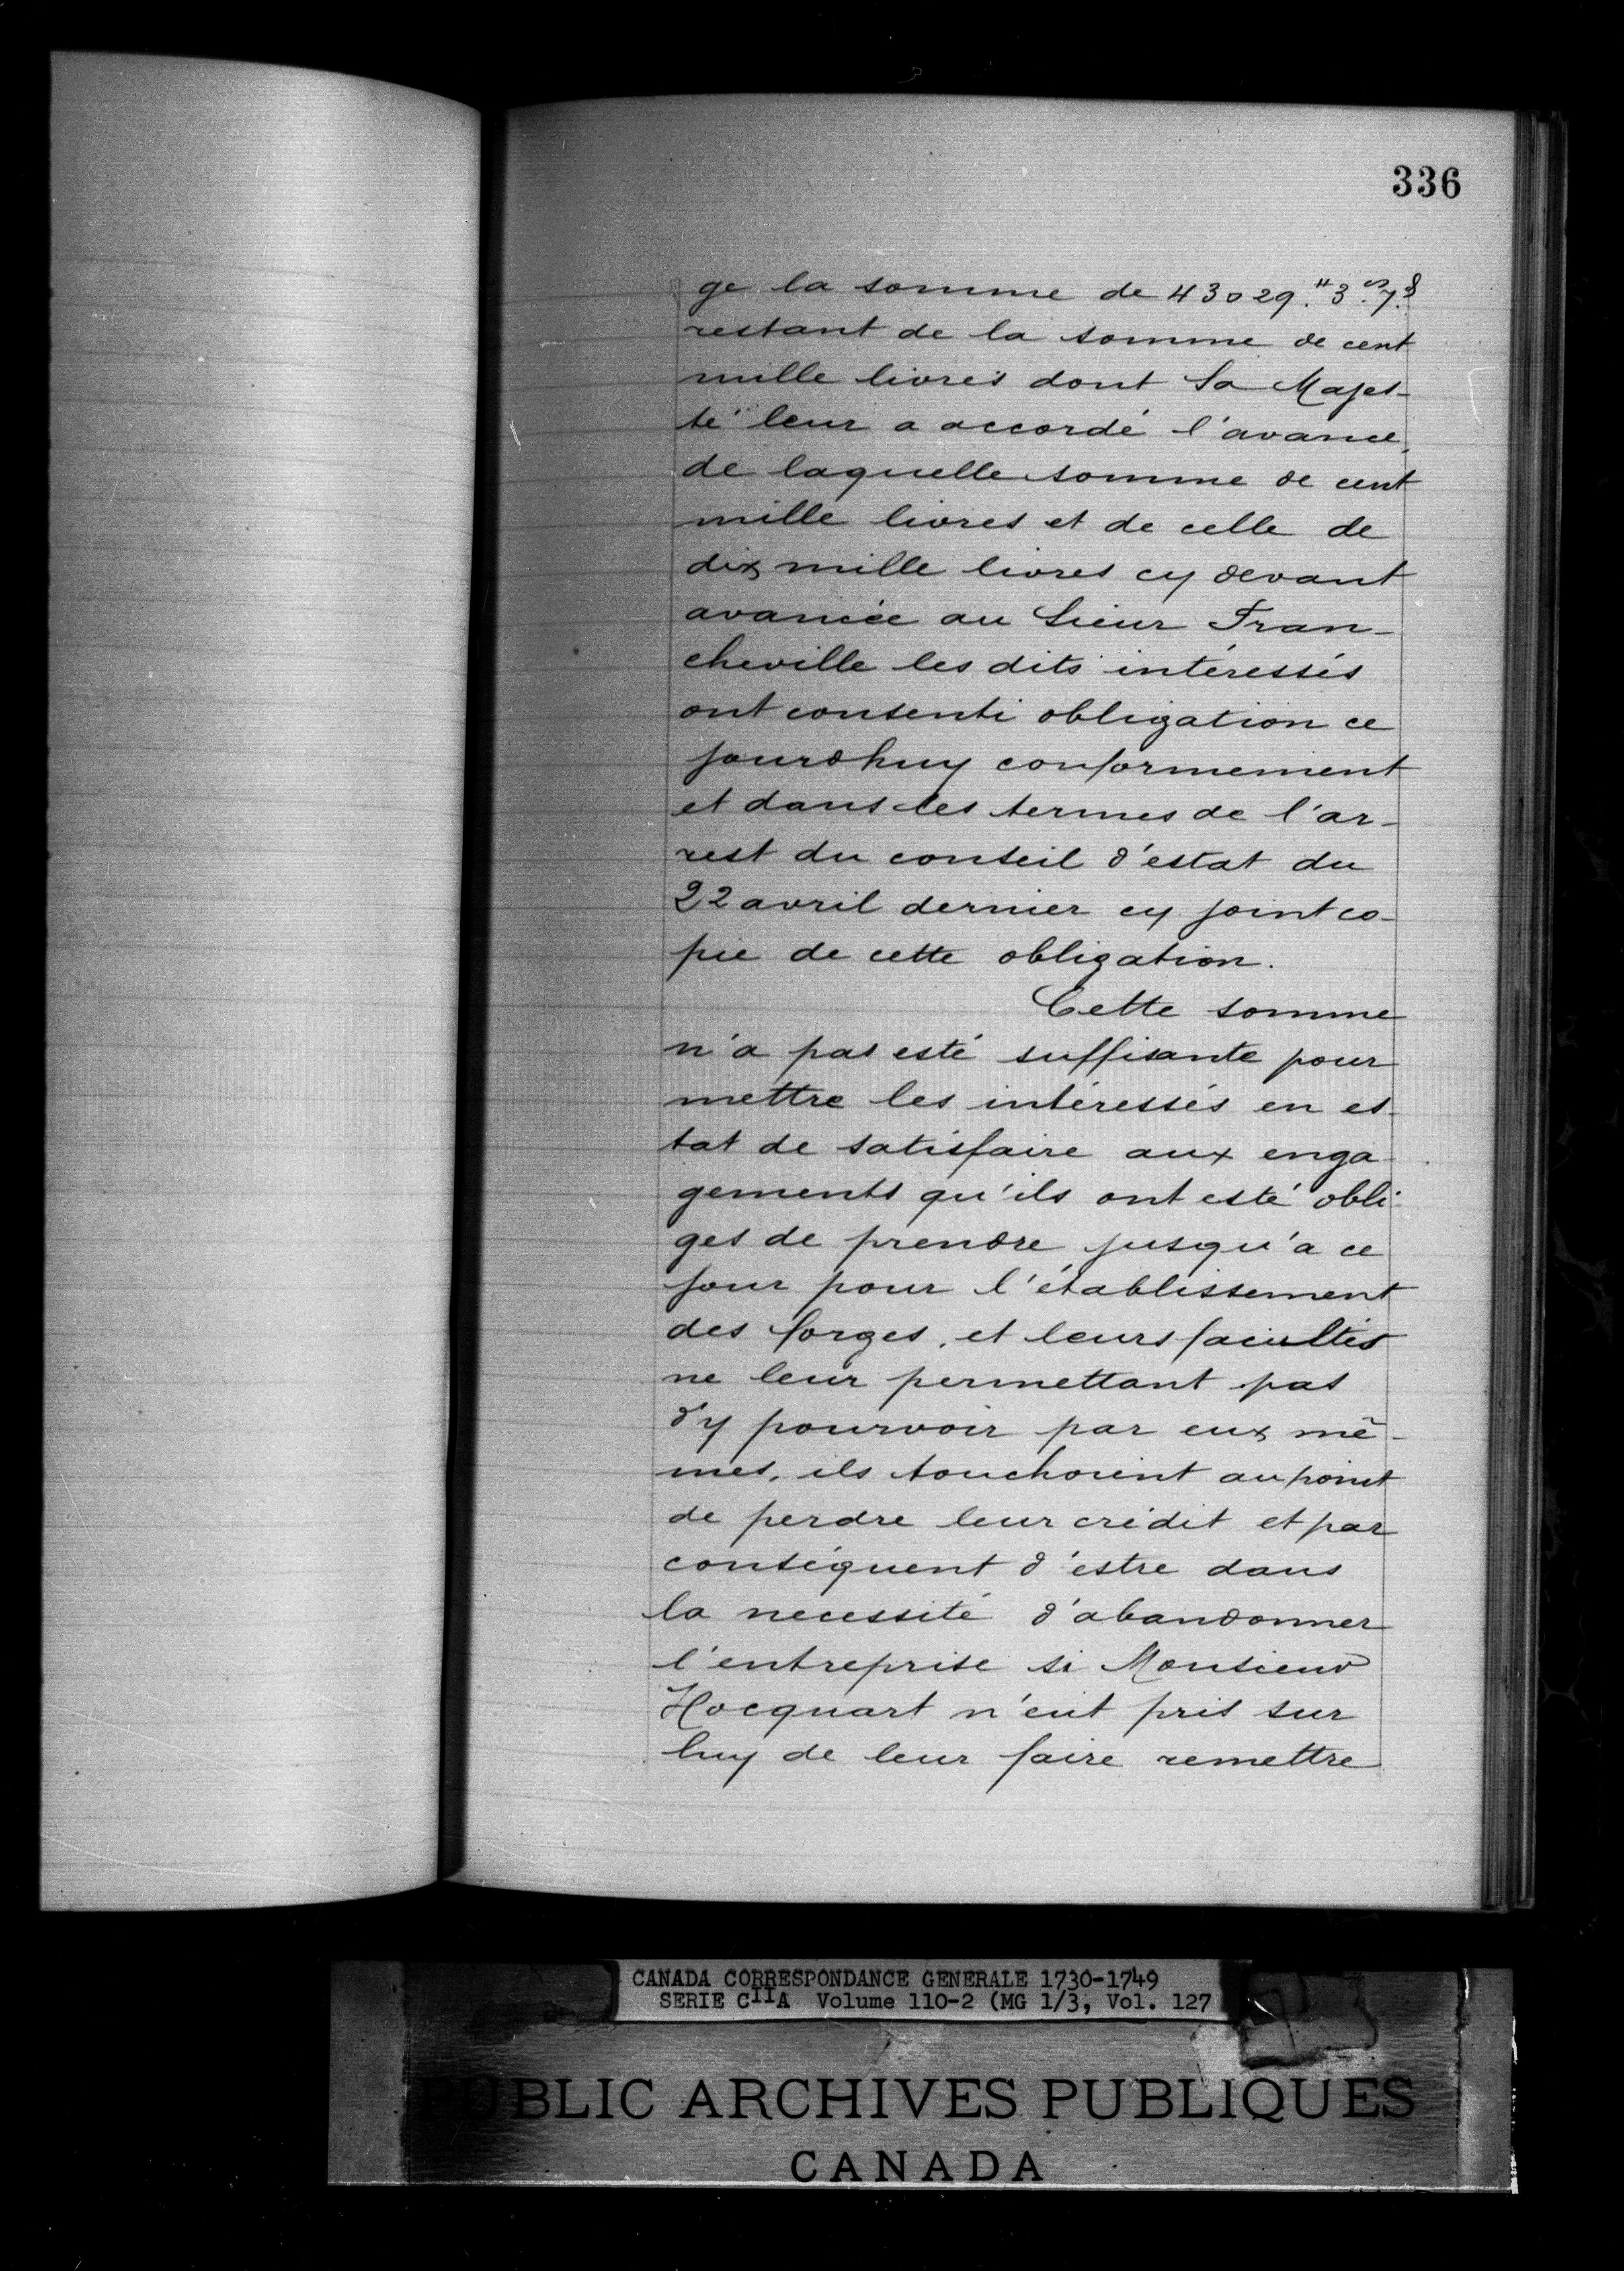 336
ge la somme de 43029.# 3.s 7.d
restant de la somme de cent
mille livres dont Sa Majes-
té leur a accordé l'avance,
de laquelle somme de cent
mille livres et de celle de
dix mille livres cy devant
avancée au Sieur Fran-
cheville les dits intéressés
ont consenti obligation ce
jourdhuy conformement
et dans les termes de l'ar-
rest du conseil d'estat du
22 avril dernier cy joint co-
pie de cette obligation.
Cette somme
n'a pas esté suffisante pour
mettre les intéressés en es-
tat de satisfaire aux enga-
gements qu'ils ont esté obli-
ges de prendre jusqu'a ce
jour pour l'établissement
des forges, et leurs facultés
ne leur permettant pas
d'y pourvoir par eux mê-
mes, ils touchoient au point
de perdre leur crédit et par
conséquent d'estre dans
la necessité d'abandonner
l'entreprise si Monsieur
Hocquart n'eut pris sur
luy de leur faire remettre
CANADA CORRESPONDANCE GENERALE 1730-1749
SERIE CIIA Volume 110-2 (MG 1/3, Vol. 127
PUBLIC ARCHIVES PUBLIQUES
CANADA